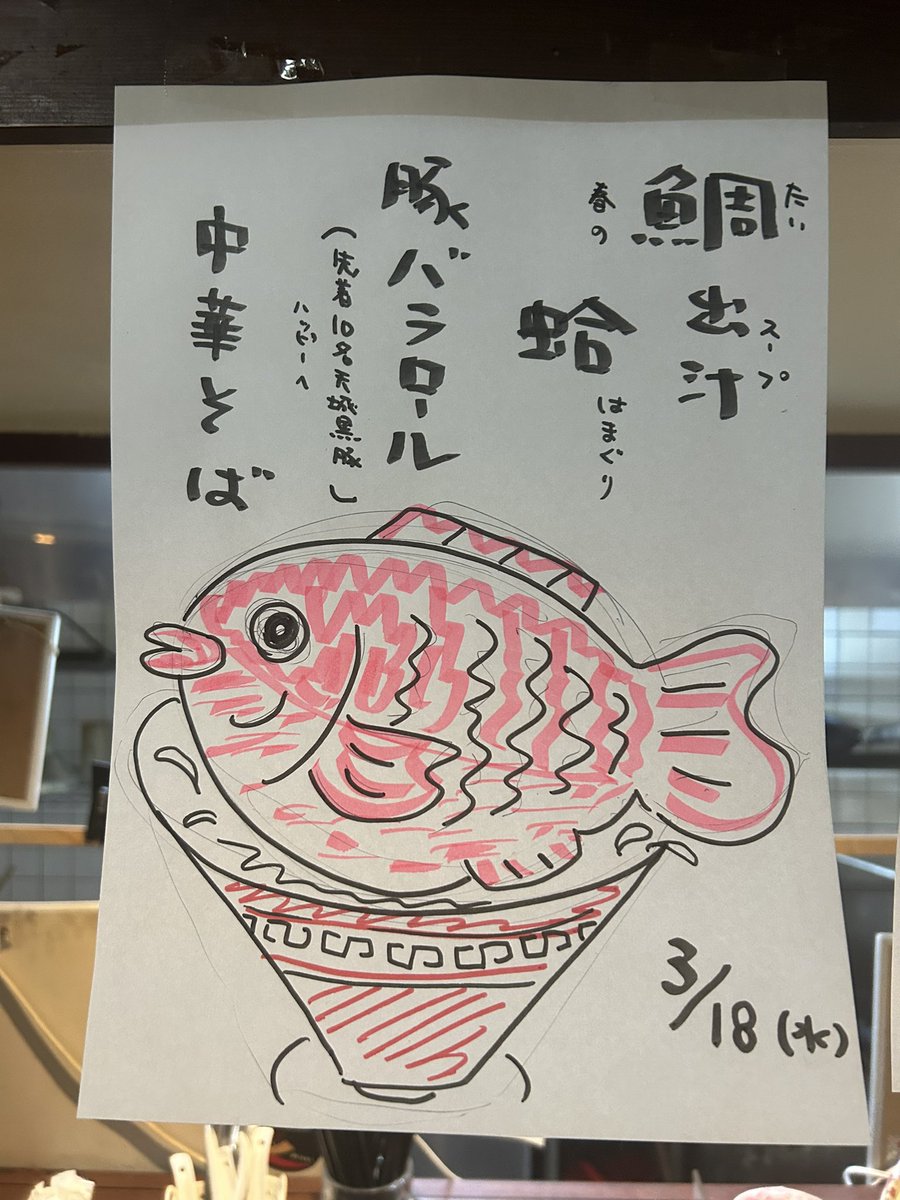 鯛出汁
たい
スープ
春の
蛤
はまぐり
豚バラロール
(先着10名天城黒豚)
ハッピーへ
中華そば
3/18(水)